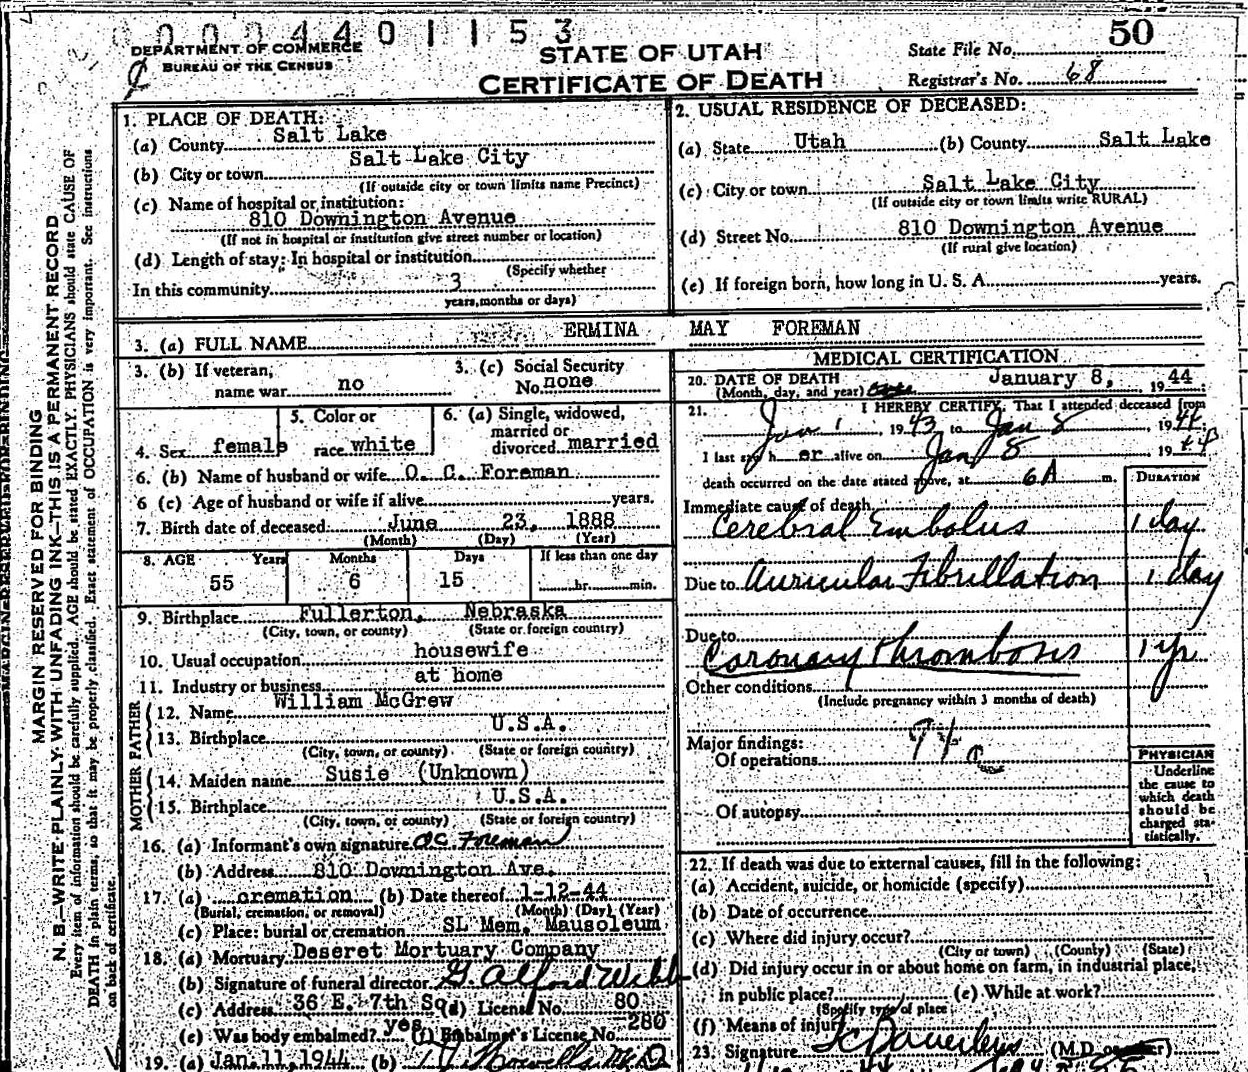 0004401153
DEPARTMENT OF COMMERCE
BUREAU OF THE CENSUS
STATE OF UTAH
CERTIFICATE OF DEATH
State File No. 50
Registrar's No. 68
MARGIN RESERVED FOR BINDING
N. B.—WRITE PLAINLY WITH UNFADING INK—THIS IS A PERMANENT RECORD
Every item of information should be carefully supplied. AGE should be stated EXACTLY. PHYSICIANS should state CAUSE OF
DEATH in plain terms, so that it may be properly classified. Exact statement of OCCUPATION is very important. See instructions
on back of certificate.
1. PLACE OF DEATH:
(a) County Salt Lake
(b) City or town Salt Lake City
(If outside city or town limits name Precinct)
(c) Name of hospital or institution:
810 Downington Avenue
(If not in hospital or institution give street number or location)
(d) Length of stay: In hospital or institution
(Specify whether
In this community 3
years, months or days)
2. USUAL RESIDENCE OF DECEASED:
(a) State Utah (b) County Salt Lake
(c) City or town Salt Lake City
(If outside city or town limits write RURAL)
(d) Street No. 810 Downington Avenue
(If rural give location)
(e) If foreign born, how long in U. S. A. years.
3. (a) FULL NAME ERMINA MAY FOREMAN
3. (b) If veteran, name war no
3. (c) Social Security No. none
4. Sex female
5. Color or race white
6. (a) Single, widowed, married or divorced married
6. (b) Name of husband or wife O. C. Foreman
6 (c) Age of husband or wife if alive years.
7. Birth date of deceased: June 23, 1888
(Month) (Day) (Year)
8. AGE Years Months Days If less than one day
55 6 15 hr. min.
9. Birthplace Fullerton, Nebraska
(City, town, or county) (State or foreign country)
10. Usual occupation housewife
11. Industry or business at home
FATHER
12. Name William McGrew
13. Birthplace U.S.A.
(City, town, or county) (State or foreign country)
MOTHER
14. Maiden name Susie (Unknown)
15. Birthplace U.S.A.
(City, town, or county) (State or foreign country)
16. (a) Informant's own signature OC Foreman
(b) Address 810 Downington Ave.
17. (a) cremation (b) Date thereof 1-12-44
(Burial, cremation, or removal) (Month) (Day) (Year)
(c) Place: burial or cremation SL Mem. Mausoleum
18. (a) Mortuary Deseret Mortuary Company
(b) Signature of funeral director G. Alford Webb
(c) Address 36 E. 7th So. (d) License No. 80
(e) Was body embalmed? yes (f) Embalmer's License No. 280
19. (a) Jan. 11, 1944 (b) M.D.
MEDICAL CERTIFICATION
20. DATE OF DEATH January 8, 1944
(Month, day, and year)
21. I HEREBY CERTIFY, That I attended deceased from
Jan 1, 1943 to Jan 8 1944
I last saw her alive on Jan 8 1944
death occurred on the date stated above, at 6A m.
DURATION
Immediate cause of death
Cerebral Embolus 1 day
Due to Auricular Fibrillation 1 day
Due to
Coronary Thrombosis 1 yr
Other conditions
(Include pregnancy within 3 months of death)
Major findings:
Of operations
Of autopsy
PHYSICIAN
Underline
the cause to
which death
should be
charged sta-
tistically.
22. If death was due to external causes, fill in the following:
(a) Accident, suicide, or homicide (specify)
(b) Date of occurrence
(c) Where did injury occur?
(City or town) (County) (State)
(d) Did injury occur in or about home on farm, in industrial place,
in public place? (e) While at work?
(Specify type of place)
(f) Means of injury
23. Signature (M.D. or